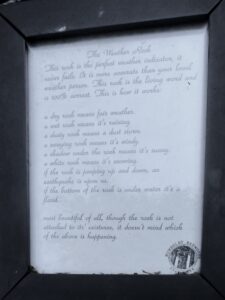 The Weather Rock
This rock is the perfect weather indicator, it
never fails. It is more accurate than your local
weather person. This rock is the living word and
is 100% correct. This is how it works:
a dry rock means fair weather.
a wet rock means it's raining.
a dusty rock means a dust storm.
a swaying rock means it's windy.
a shadow under the rock means it's sunny.
a white rock means it's snowing.
if the rock is jumping up and down, an
earthquake is upon us.
if the bottom of the rock is under water it's a
flood.
most beautiful of all, though the rock is not
attached to its' existence, it doesn't mind which
of the above is happening.